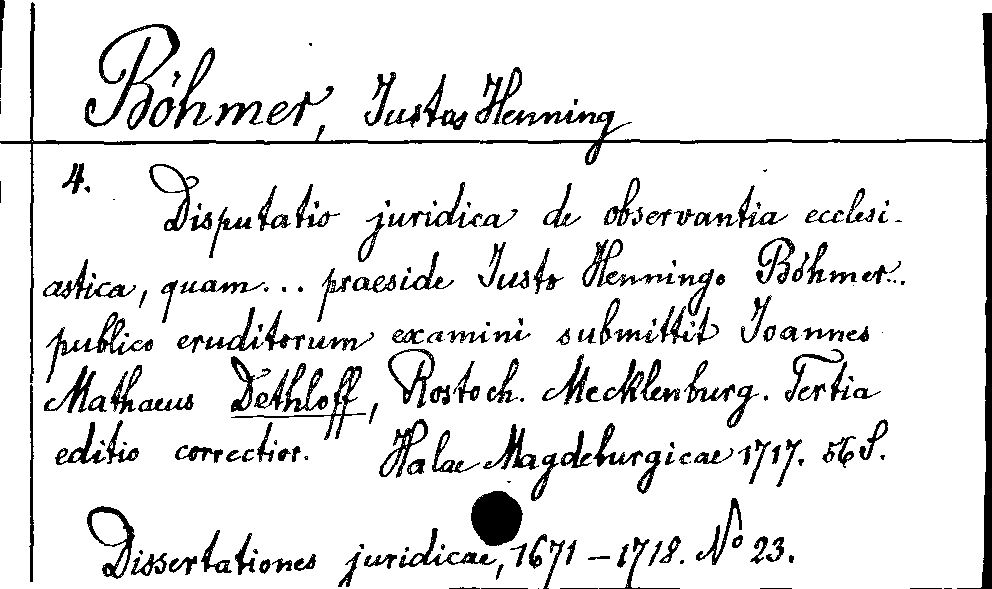 Böhmer, Iustus Henning
4.
Disputatio juridica de observantia ecclesi-
astica, quam... praeside Iusto Henningo Böhmer...
publico eruditorum examini submittit Ioannes
Mathaeus Dethloff, Rostoch. Mecklenburg. Tertia
editio correctior. Halae Magdeburgicae 1717. 56 S.
Dissertationes juridicae, 1671-1718. No 23.